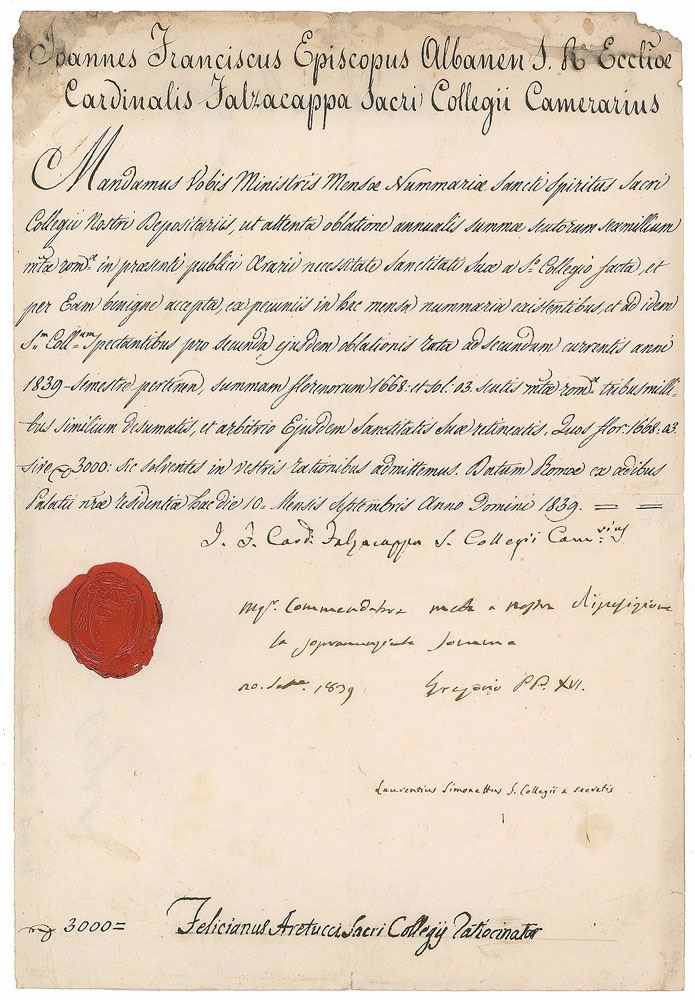 Joannes Franciscus Episcopus Albanen S. R. Eccliæ
Cardinalis Falzacappa Sacri Collegii Camerarius
Mandamus Vobis Ministris Mensæ Nummariæ Sancti Spiritus Sacri
Collegii Nostri Depositariis, ut attenta oblatione annualis summæ scutorum sexmillium
mtæ romæ in præsenti publici Ærarii necessitate Sanctitati Suæ a So Collegio facta, et
per Eam benigne accepta, ex pecuniis in hac mensa nummaria existentibus, et ad idem
Sm Collum Spectantibus pro secunda ejusdem oblationis rata ad secundum currentis anni
1839 Semestre pertinen, summam florenorum 1668: et sol: 03. scutis mtæ romæ tribusmilli-
bus similium desumatis, et arbitrio Ejusdem Sanctitatis Suæ retineatis. Quos flor: 1668: 03.
sive 3000: sic solventes in vestris rationibus admittemus. Datum Romæ ex ædibus
Palatii nræ residentiæ hac die 10= Mensis Septembris Anno Domini 1839. = =
J. F. Card. Falzacappa S. Collegii Camrius
Mgr. Commendatore metta a nostra disposizione
la sopraenunciata somma
10. Sette. 1839 Gregorio PP. XVI.
Laurentius Simonettus S. Collegii a secretis
3000=
Felicianus Aretucci Sacri Collegij Ratiocinator